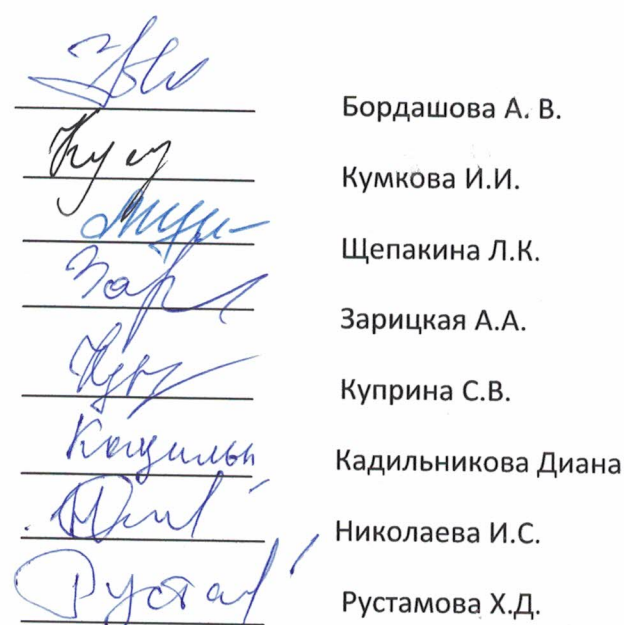 Бордашова А. В.
Кумкова И.И.
Щепакина Л.К.
Зар Зарицкая А.А.
Куприна С.В.
Кадильн Кадильникова Диана
Николаева И.С.
Рустам Рустамова Х.Д.